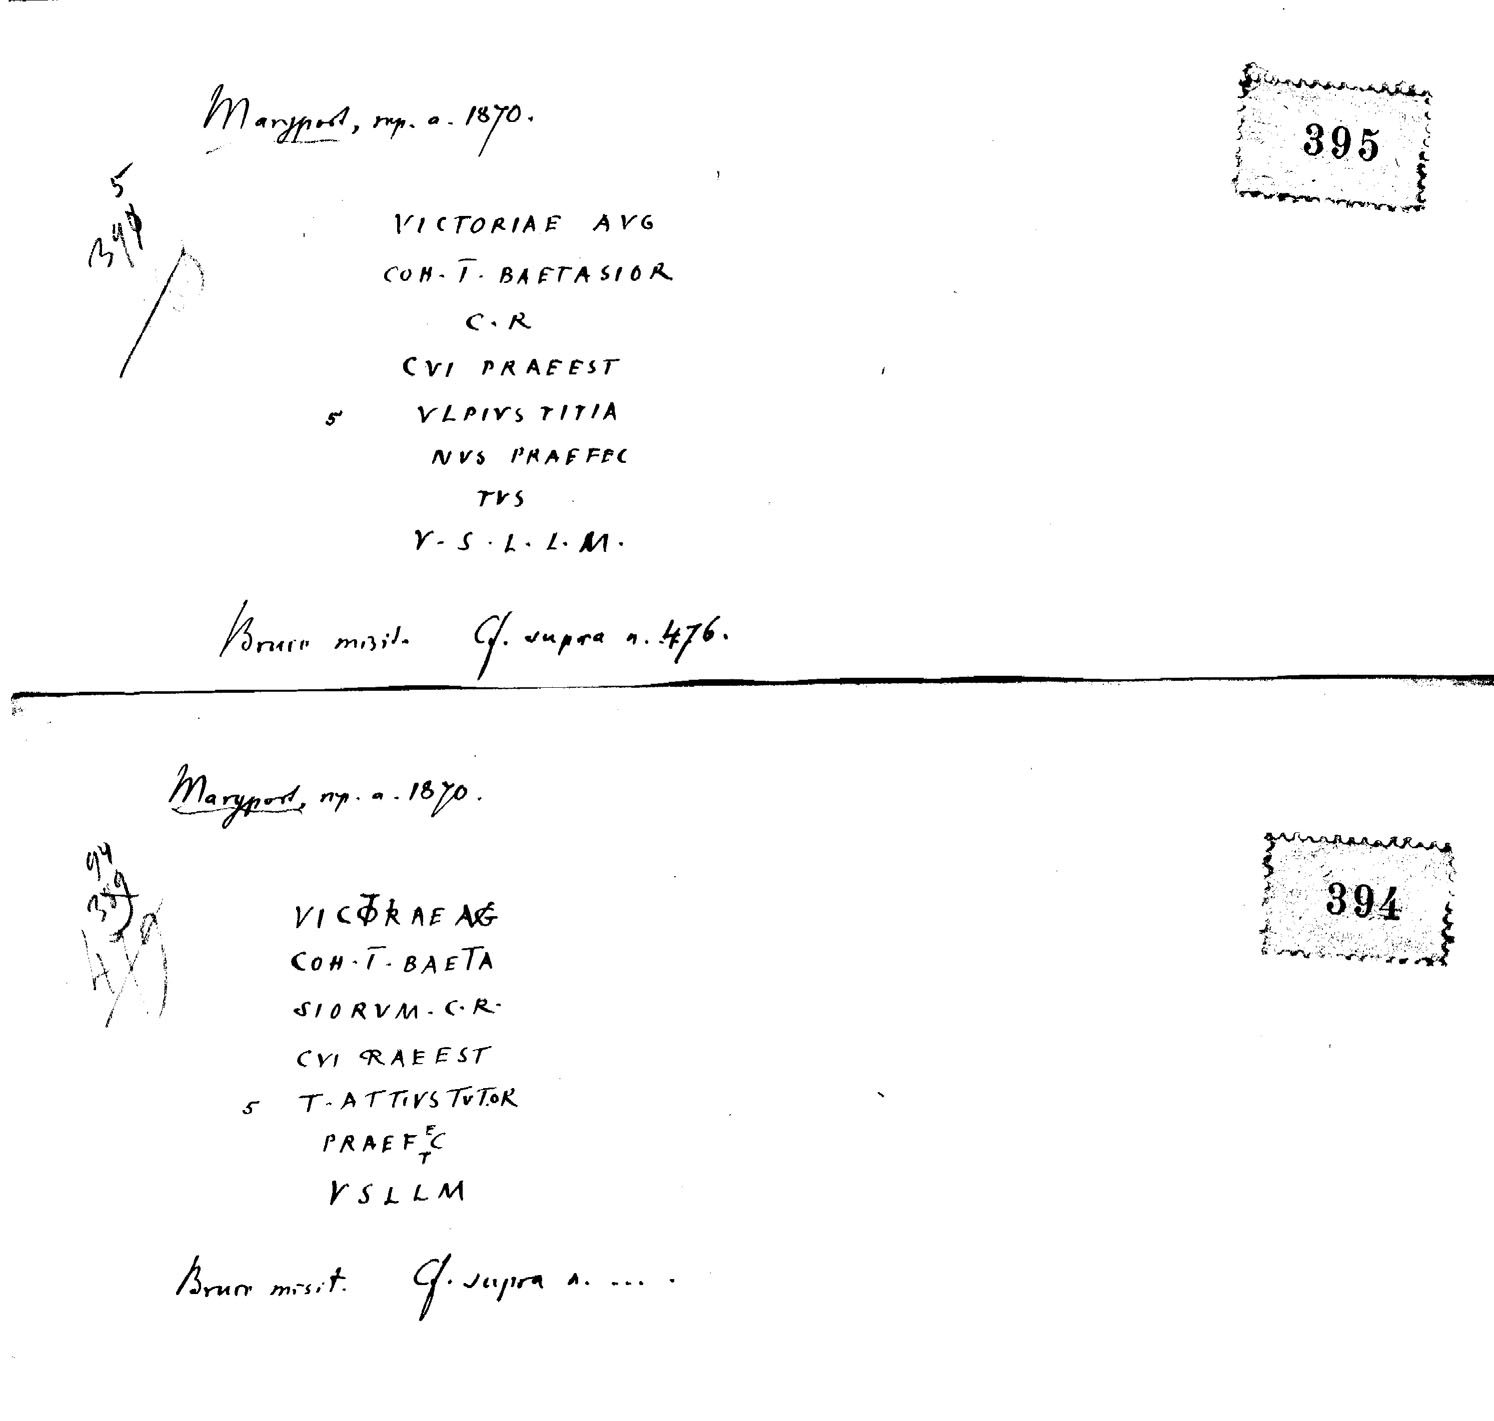 Maryport, rep. a. 1870.
395
5
VICTORIAE AVG
COH · I̅ · BAETASIOR
C · R
CVI PRAEEST
5 VLPIVS TITIA
NVS PRAEFEC
TVS
V · S · L · L · M ·
Bruce misit. Cf. supra n. 476.
Maryport, rep. a. 1870.
394
94
VICTORAE AVG
COH · I̅ · BAETA
SIORVM · C · R ·
CVI PRAEEST
5 T · ATTIVS TVTOR
PRAEFECT
VSLLM
Bruce misit. Cf. supra n. .... .